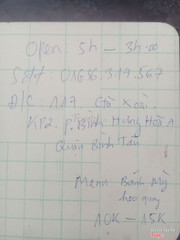 Open 5h – 3h.00
Sđt: 01656.319.567
Đ/C 117 Gò Xoài.
KP2. P. Bình Hưng Hoà A
Quận Bình Tân
Menu Bánh Mỳ
10K – 15K